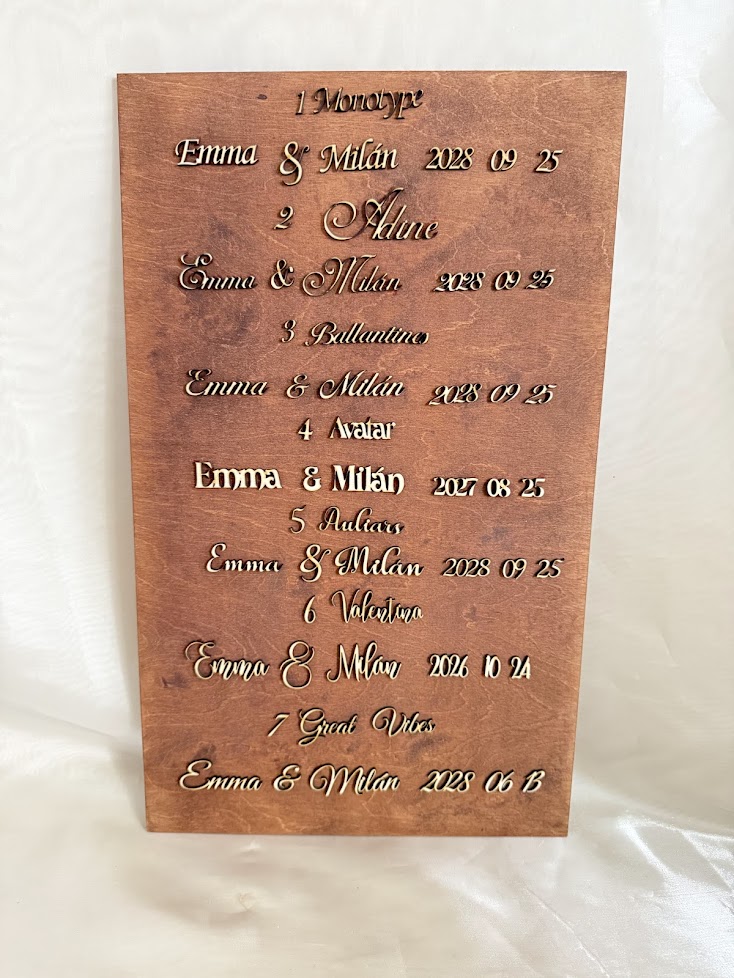 1 Monotype
Emma & Milán 2028 09 25
2 Adine
Emma & Milán 2028 09 25
3 Ballantines
Emma & Milán 2028 09 25
4 Avatar
Emma & Milán 2027 08 25
5 Auliars
Emma & Milán 2028 09 25
6 Valentina
Emma & Milán 2026 10 24
7 Great Vibes
Emma & Milán 2028 06 13